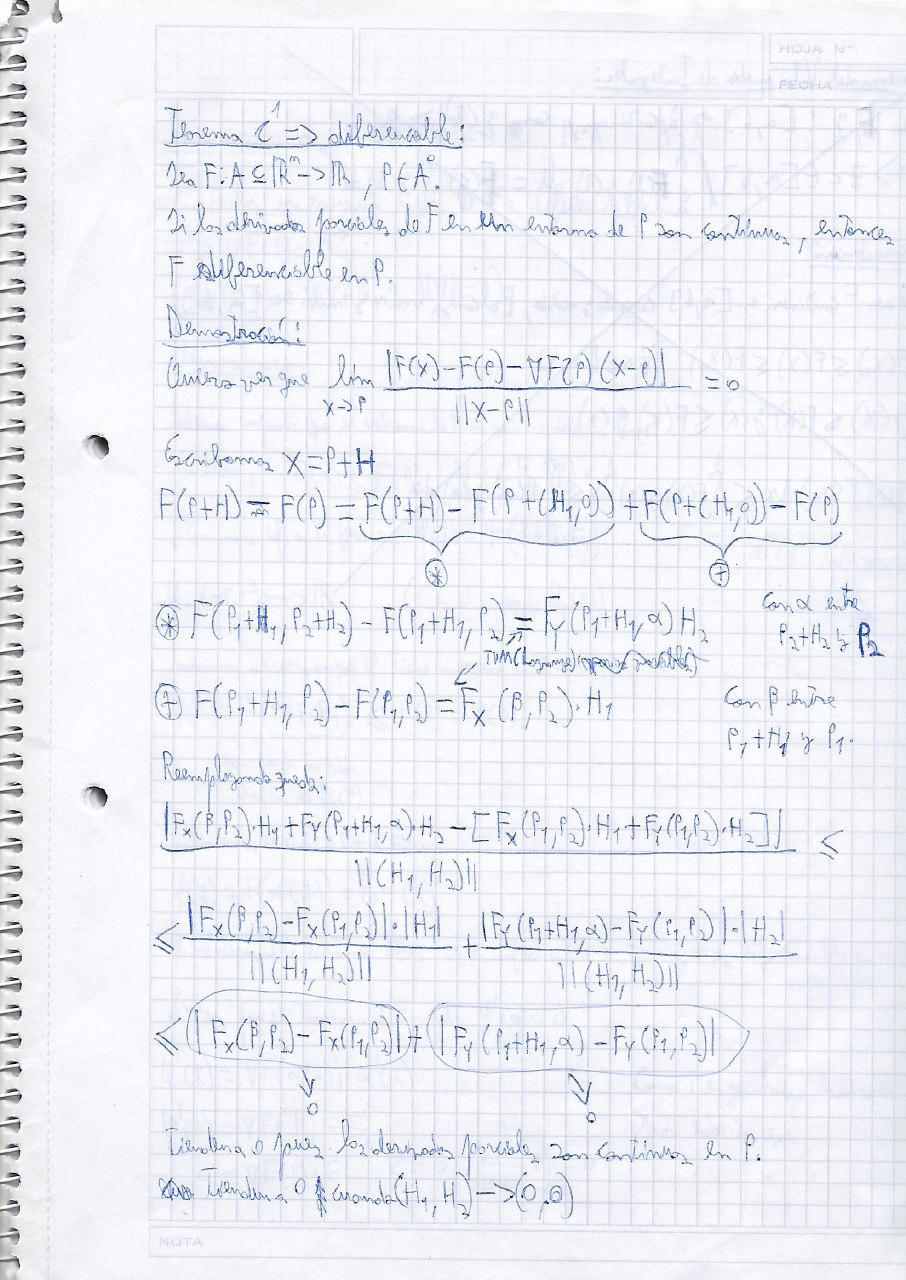 HOJA N°
FECHA
Teorema C¹ => diferenciable:
Sea F: A ⊆ ℝⁿ -> ℝ, P ∈ A°.
Si las derivadas parciales de F en un entorno de P son continuas, entonces
F diferenciable en P.
Demostración:
Quiero ver que lim X->P |F(X)-F(P)-∇F(P)(X-P)| / ||X-P|| = 0
Escribamos X=P+H
F(P+H) - F(P) = F(P+H) - F(P+(H₁,0)) + F(P+(H₁,0)) - F(P)
⊛ ⊕
⊛ F(P₁+H₁, P₂+H₂) - F(P₁+H₁, P₂) = F_Y(P₁+H₁, α) H₂ con α entre
P₂+H₂ y P₂
TVM (Lagrange)
⊕ F(P₁+H₁, P₂) - F(P₁, P₂) = F_X(β, P₂)·H₁ con β entre
P₁+H₁ y P₁.
Reemplazando queda:
|F_X(β,P₂)·H₁ + F_Y(P₁+H₁,α)·H₂ - [F_X(P₁,P₂)·H₁ + F_Y(P₁,P₂)·H₂]| / ||(H₁,H₂)|| ≤
≤ |F_X(β,P₂) - F_X(P₁,P₂)|·|H₁| / ||(H₁,H₂)|| + |F_Y(P₁+H₁,α) - F_Y(P₁,P₂)|·|H₂| / ||(H₁,H₂)||
≤ |F_X(β,P₂) - F_X(P₁,P₂)| + |F_Y(P₁+H₁,α) - F_Y(P₁,P₂)|
0 0
Tienden a 0 pues las derivadas parciales son continuas en P.
Tienden a 0 cuando (H₁,H₂) -> (0,0)
NOTA